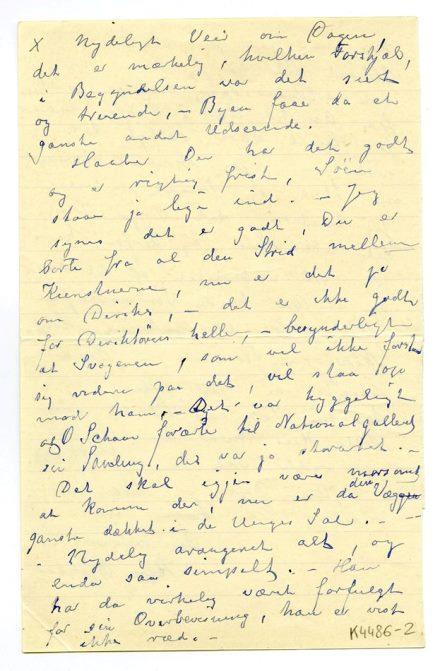 x Nydeligt Veir om Dagen,
det er mærkelig, hvilken Forskjel,
i Begyndelsen var det surt
og trivende, – Byen faae da et
ganske andet Udseende.
Haaber Du har det godt
og er rigtig frisk,
staae jo lige ind. – Jeg
synes det er godt, Du er
borte fra al den Strid mellem
Kunstnerne, nu er det jo
om Diriks, – det er ikke godt
for Direktören heller, – besynderligt
at som vil ikke forstaa
sig videre paa det, vil staa op
mod ham, – Det var hyggeligt
og O Schou forærte til Nationalgalleriet
sin Samling, det var jo storartet. –
Det skal igjen være morsomt
at komme der, nu er da den Væggen
ganske dækket i de Unges Sal. – –
– Nydelig arangeret alt, og
enda saa simpelt. – Han
har da virkelig været forfulgt
for sin Overbevisning, han er vist
ikke ræd. –
K4486-2